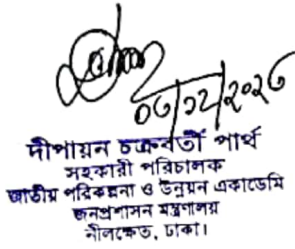 ০৬/১২/২০২৩
দীপায়ন চক্রবর্তী পার্থ
সহকারী পরিচালক
জাতীয় পরিকল্পনা ও উন্নয়ন একাডেমি
জনপ্রশাসন মন্ত্রণালয়
নীলক্ষেত, ঢাকা।